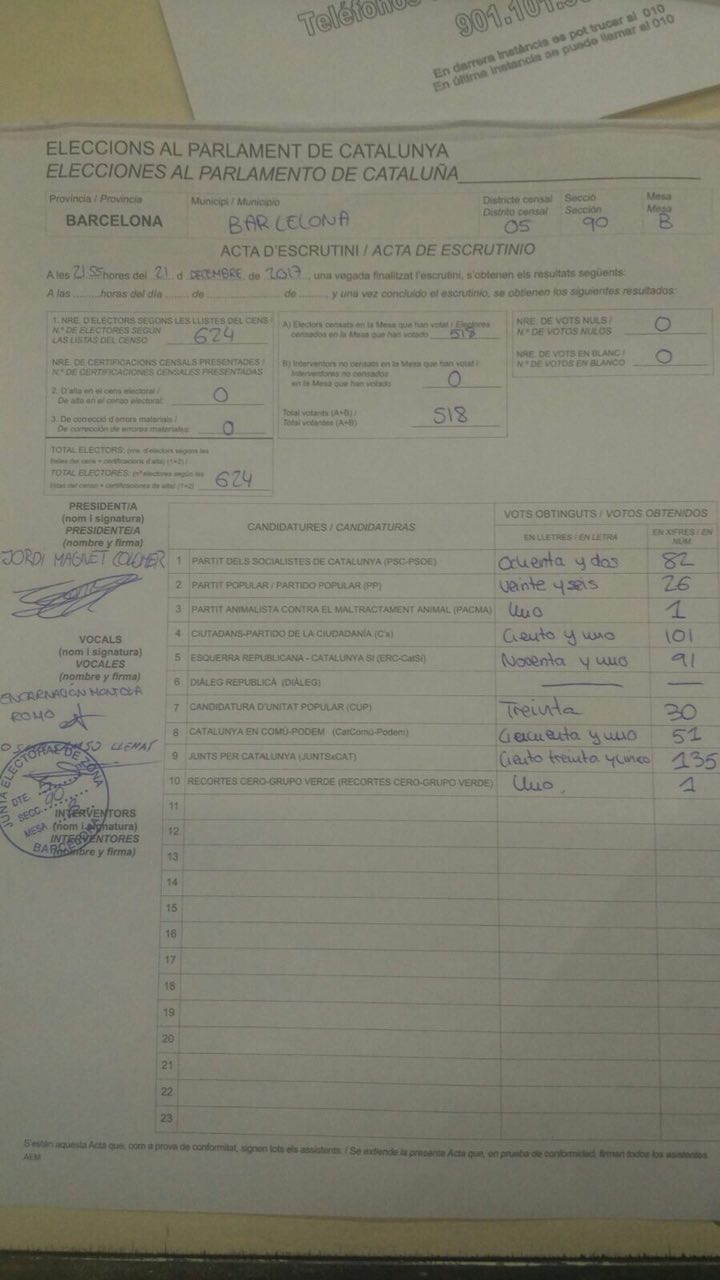 Teléfonos
901.101.
En darrera instància es pot trucar al 010
En última instancia se puede llamar al 010
ELECCIONS AL PARLAMENT DE CATALUNYA
ELECCIONES AL PARLAMENTO DE CATALUÑA
Província / Provincia Municipi / Municipio Districte censal Secció Mesa
Distrito censal Sección Mesa
BARCELONA BARCELONA 05 90 B
ACTA D'ESCRUTINI / ACTA DE ESCRUTINIO
A les 21 55 hores del 21 d DECEMBRE de 2017, una vegada finalitzat l'escrutini, s'obtenen els resultats següents:
A las ........horas del día ....... de ................ de ......., y una vez concluido el escrutinio, se obtienen los siguientes resultados:
1. NRE. D'ELECTORS SEGONS LES LLISTES DEL CENS /
N.º DE ELECTORES SEGÚN
LAS LISTAS DEL CENSO 624
NRE. DE CERTIFICACIONS CENSALS PRESENTADES /
N.º DE CERTIFICACIONES CENSALES PRESENTADAS
2. D'alta en el cens electoral /
De alta en el censo electoral: 0
3. De correcció d'errors materials /
De corrección de errores materiales: 0
TOTAL ELECTORS: (nre. d'electors segons les
llistes del cens + certificacions d'alta) (1+2) /
TOTAL ELECTORES: (nº electores según las
listas del censo + certificaciones de alta) (1+2) 624
A) Electors censats en la Mesa que han votat / Electores
censados en la Mesa que han votado 518
B) Interventors no censats en la Mesa que han votat /
Interventores no censados
en la Mesa que han votado 0
Total votants (A+B) /
Total votantes (A+B) 518
NRE. DE VOTS NULS /
N.º DE VOTOS NULOS 0
NRE. DE VOTS EN BLANC /
N.º DE VOTOS EN BLANCO 0
PRESIDENT/A
(nom i signatura)
PRESIDENTE/A
(nombre y firma)
JORDI MAGNET
VOCALS
(nom i signatura)
VOCALES
(nombre y firma)
ENCARNACION MONTOYA
ROMO
LLENAS
JUNTA ELECTORAL DE ZONA
DTE. 5
SECC. 90
MESA B
BARCELONA
INTERVENTORS
(nom i signatura)
INTERVENTORES
(nombre y firma)
CANDIDATURES / CANDIDATURAS VOTS OBTINGUTS / VOTOS OBTENIDOS
EN LLETRES / EN LETRA EN XIFRES / EN NÚM.
1 PARTIT DELS SOCIALISTES DE CATALUNYA (PSC-PSOE) Ochenta y dos 82
2 PARTIT POPULAR / PARTIDO POPULAR (PP) Veinte y seis 26
3 PARTIT ANIMALISTA CONTRA EL MALTRACTAMENT ANIMAL (PACMA) Uno 1
4 CIUTADANS-PARTIDO DE LA CIUDADANÍA (C's) Ciento y uno 101
5 ESQUERRA REPUBLICANA - CATALUNYA SI (ERC-CatSí) Noventa y uno 91
6 DIÀLEG REPUBLICÀ (DIÀLEG) — —
7 CANDIDATURA D'UNITAT POPULAR (CUP) Treinta 30
8 CATALUNYA EN COMÚ-PODEM (CatComú-Podem) Cincuenta y uno 51
9 JUNTS PER CATALUNYA (JUNTSxCAT) Ciento treinta y cinco 135
10 RECORTES CERO-GRUPO VERDE (RECORTES CERO-GRUPO VERDE) Uno. 1
11
12
13
14
15
16
17
18
19
20
21
22
23
S'estén aquesta Acta que, com a prova de conformitat, signen tots els assistents. / Se extiende la presente Acta que, en prueba de conformidad, firman todos los asistentes.
AEM